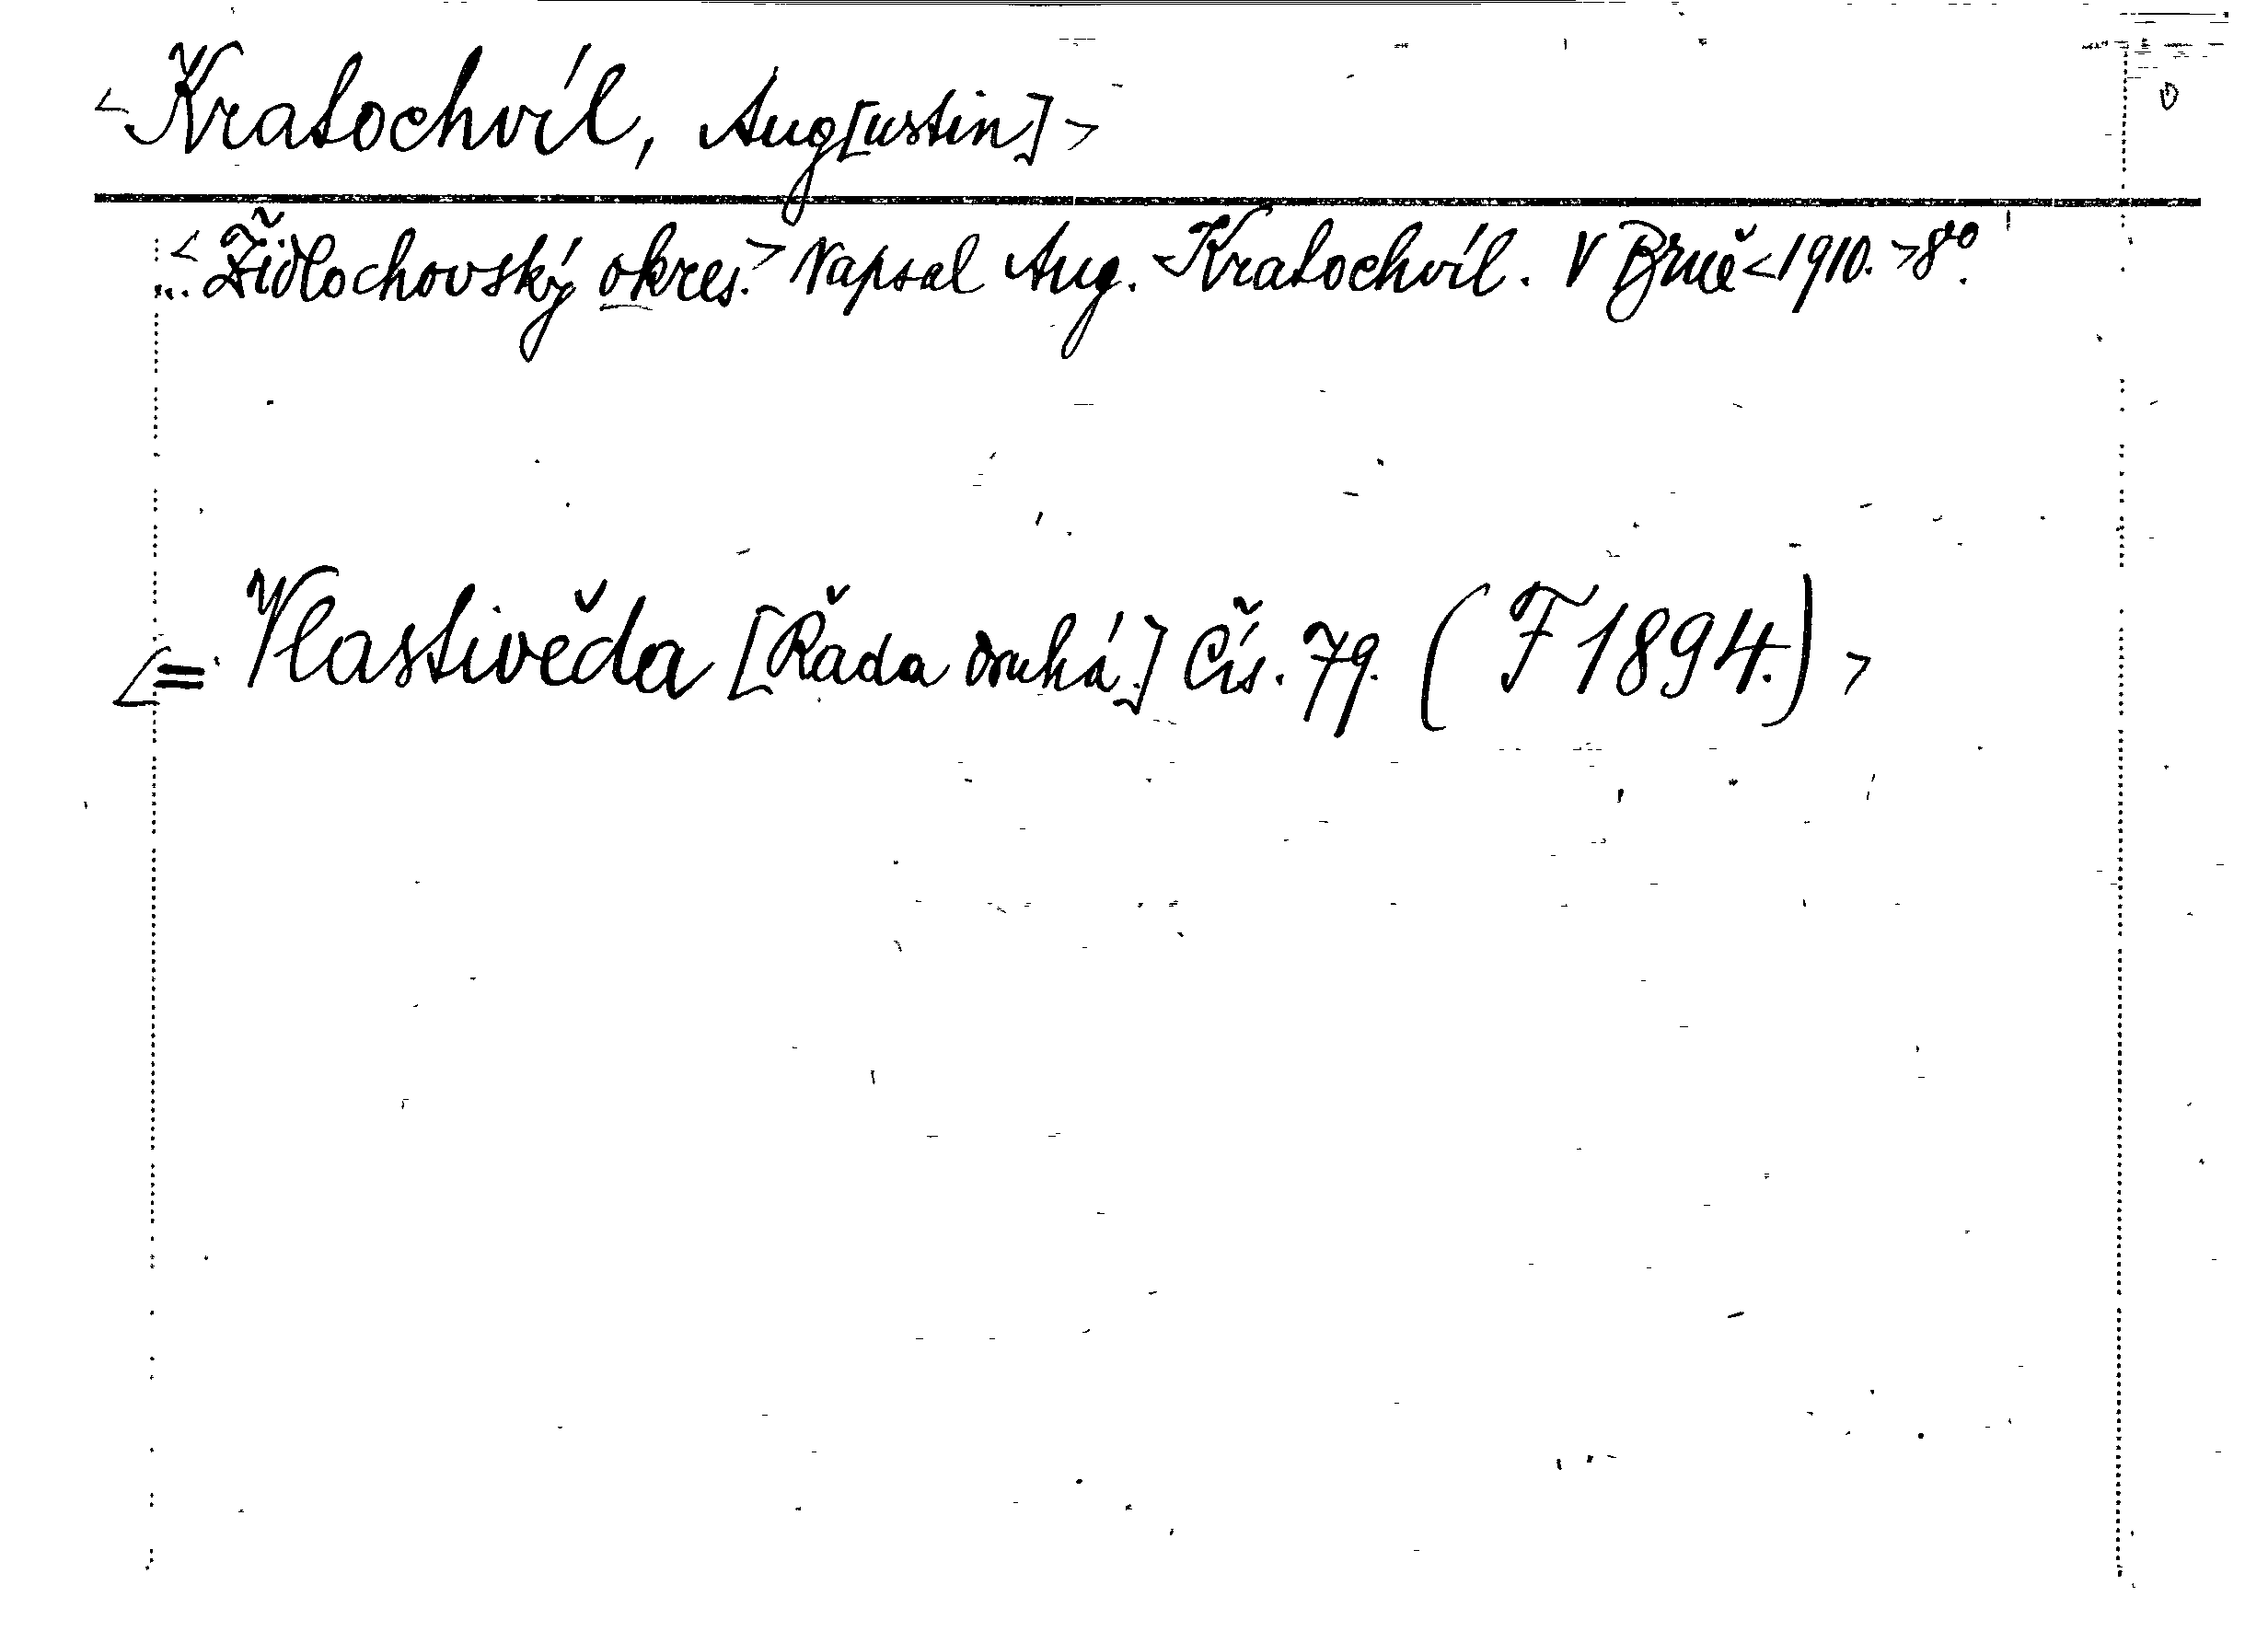 <Kratochvíl, Aug[ustin]>
<... Židlochovský okres.> Napsal Aug. Kratochvíl. V Brně <1910.> 8°.
<= Vlastivěda [Řada druhá.] Čís. 79. (F 1894.)>